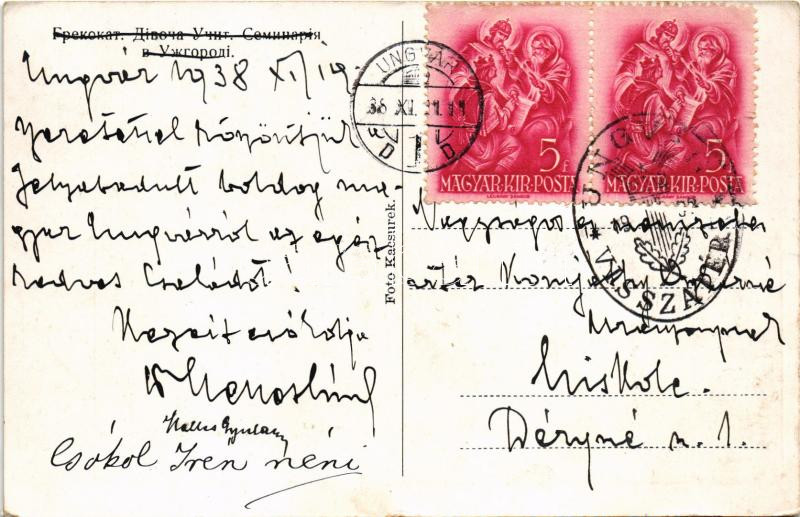 Грекокат. Дївоча Учит. Семинарія
в Ужгородї.
Ungvár 1938 XI/19.
Szeretettel köszöntjük
felszabadult boldog ma-
gyar Ungvárról az egész
kedves családot!
Kezeit csókolja
Csókol Iren néni
Foto Kacsurek.
UNGVÁR
38 XI. 21.
5f
MAGYAR·KIR·POSTA
5f
MAGYAR·KIR·POSTA
UNGVÁR
VISSZATÉRT
19 38
Nagyságos
úrnő
Miskolc.
Déryné u. 1.